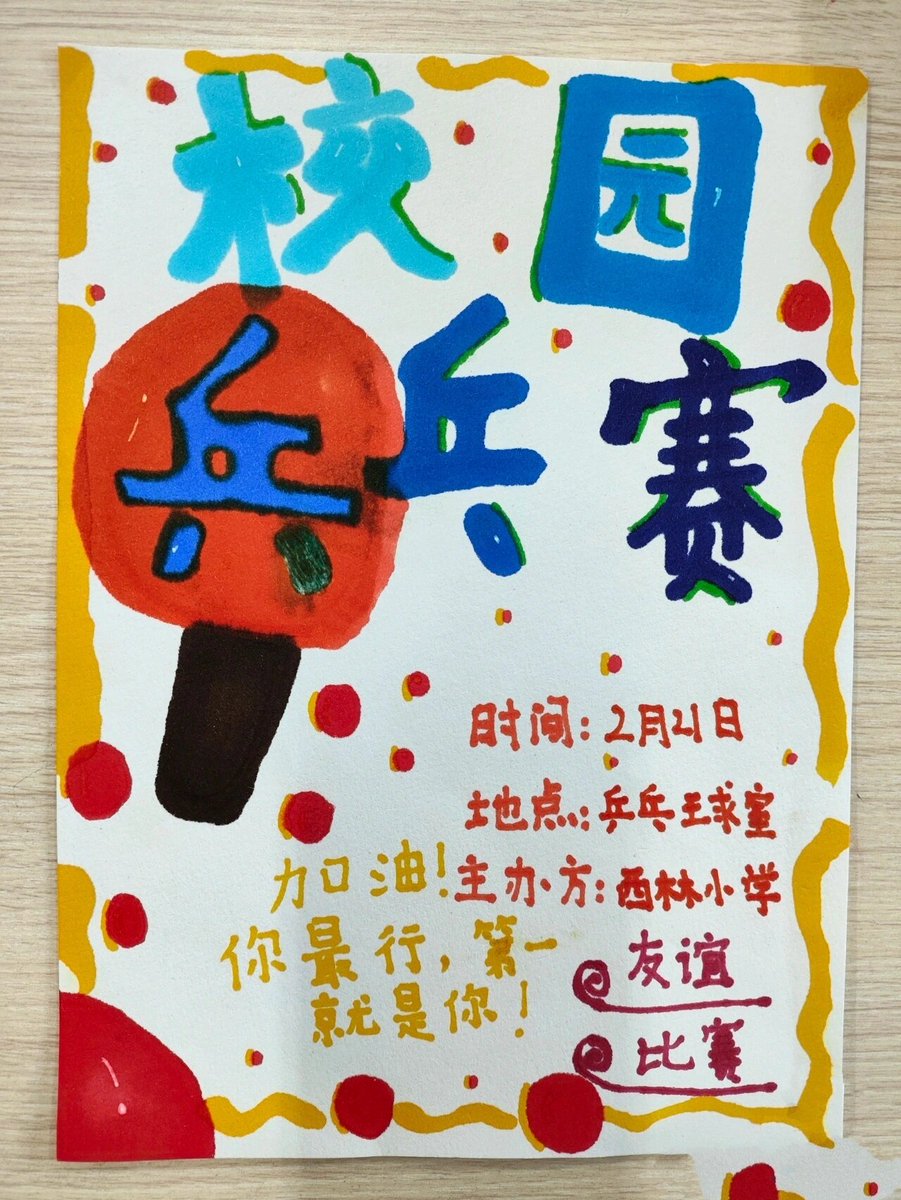 校园
兵乓赛
时间：2月21日
地点：乒乓球室
主办方：西林小学
加油！
你最行，第一
就是你！
友谊
比赛